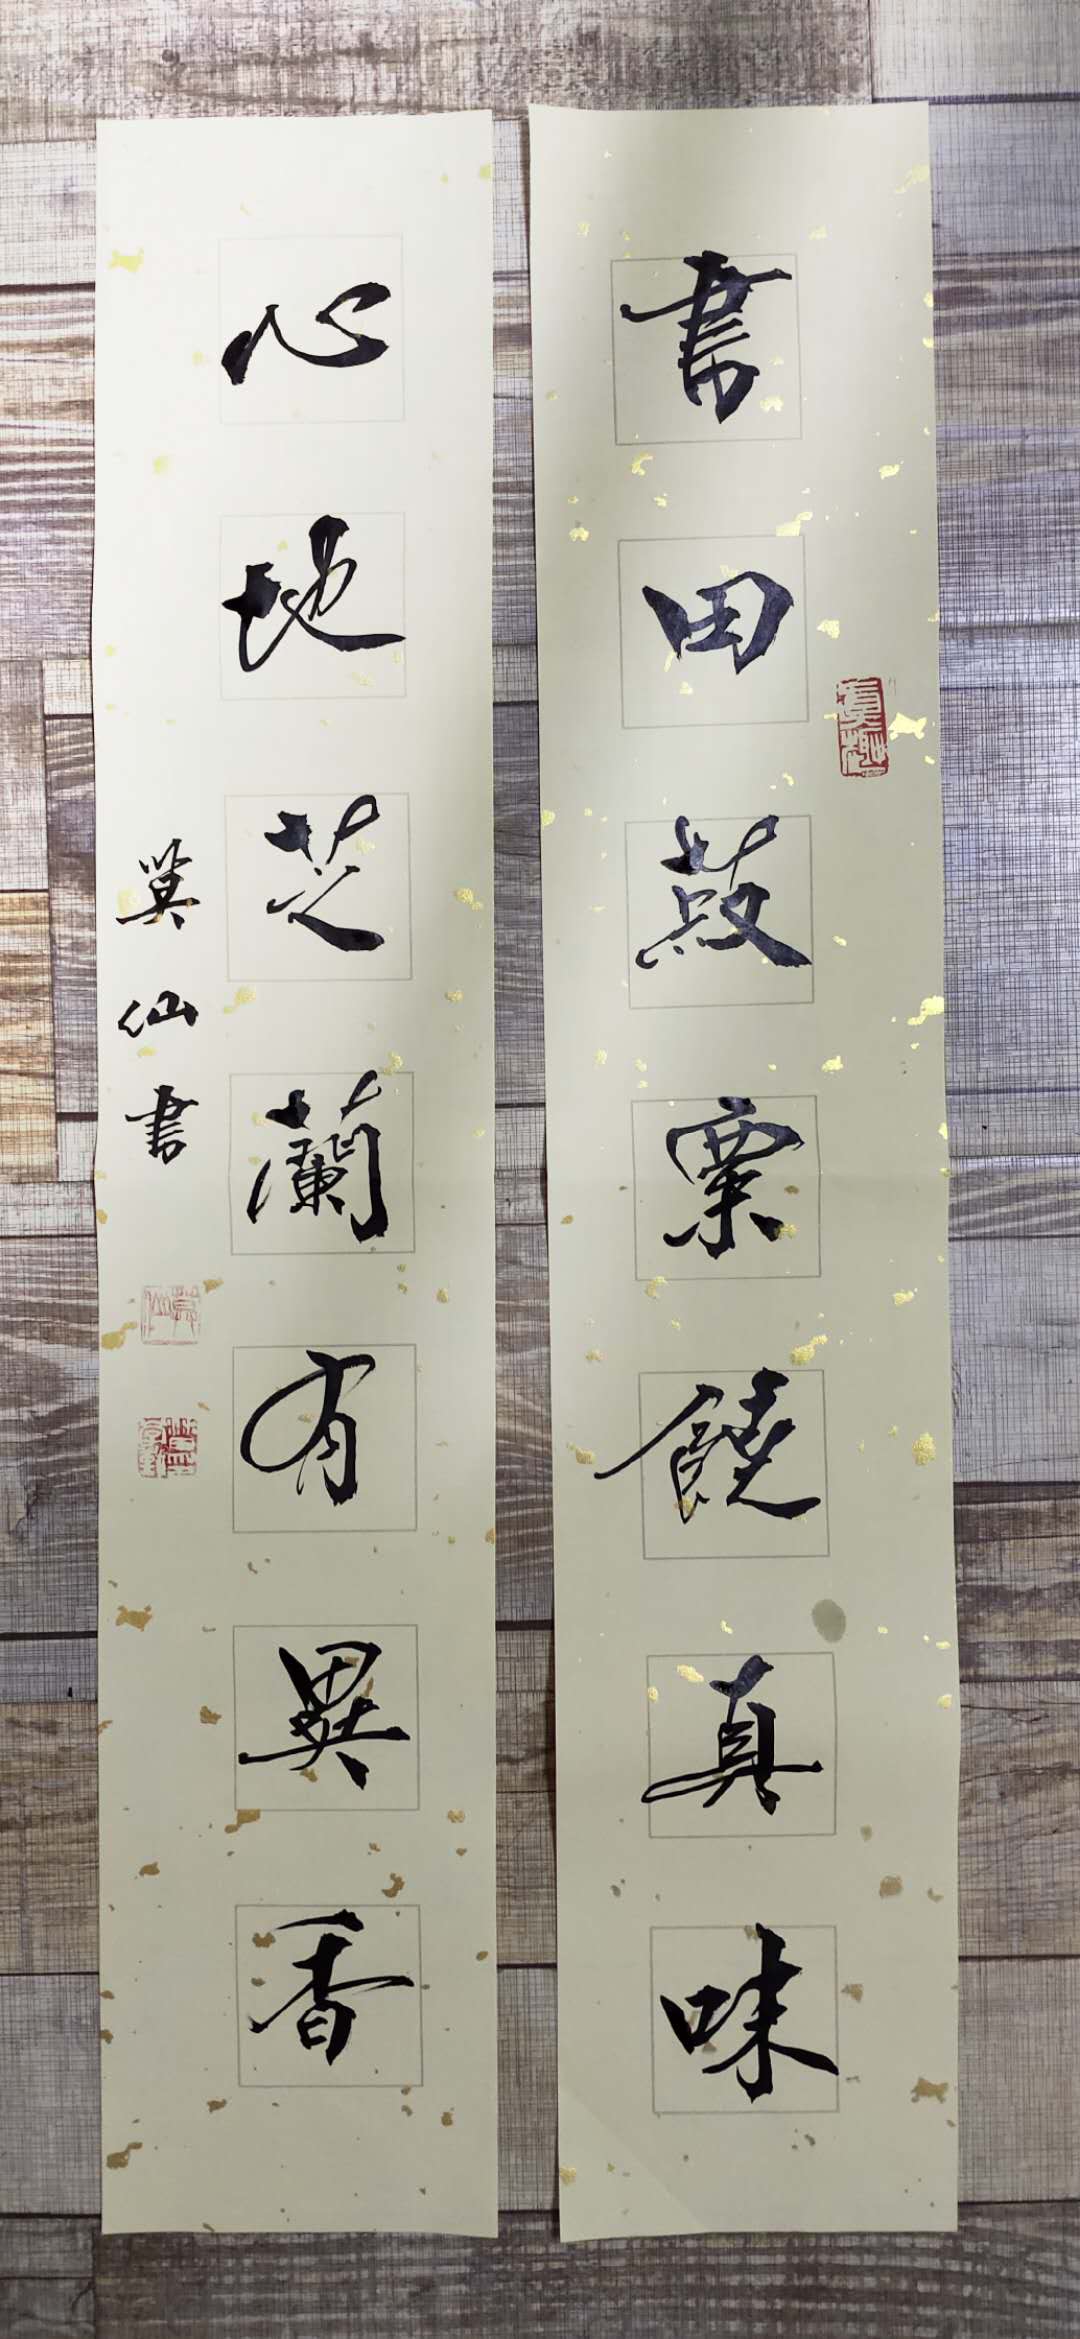 書田菽粟饒真味
心地芝蘭有異香
仙書